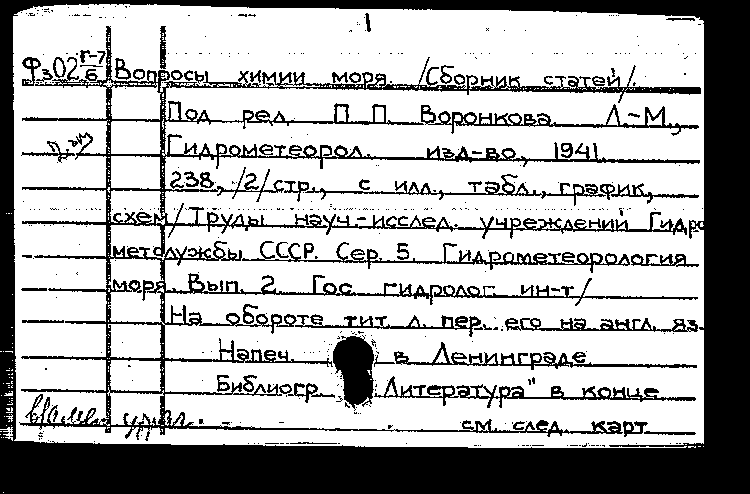 1
Фз02 Г-7/6 Вопросы химии моря. /Сборник статей/.
Под ред. П. П. Воронкова. Л.-М.,
Гидрометеорол. изд-во, 1941.
238, /2/ стр., с илл., табл., график,
схем/Труды науч.-исслед. учреждений Гидро
метслужбы СССР. Сер. 5. Гидрометеорология
моря. Вып. 2. Гос. гидролог. ин-т/
На обороте тит. л. пер. его на англ. яз.
Напеч. в Ленинграде
Библиогр. Литература" в конце
см. след. карт.